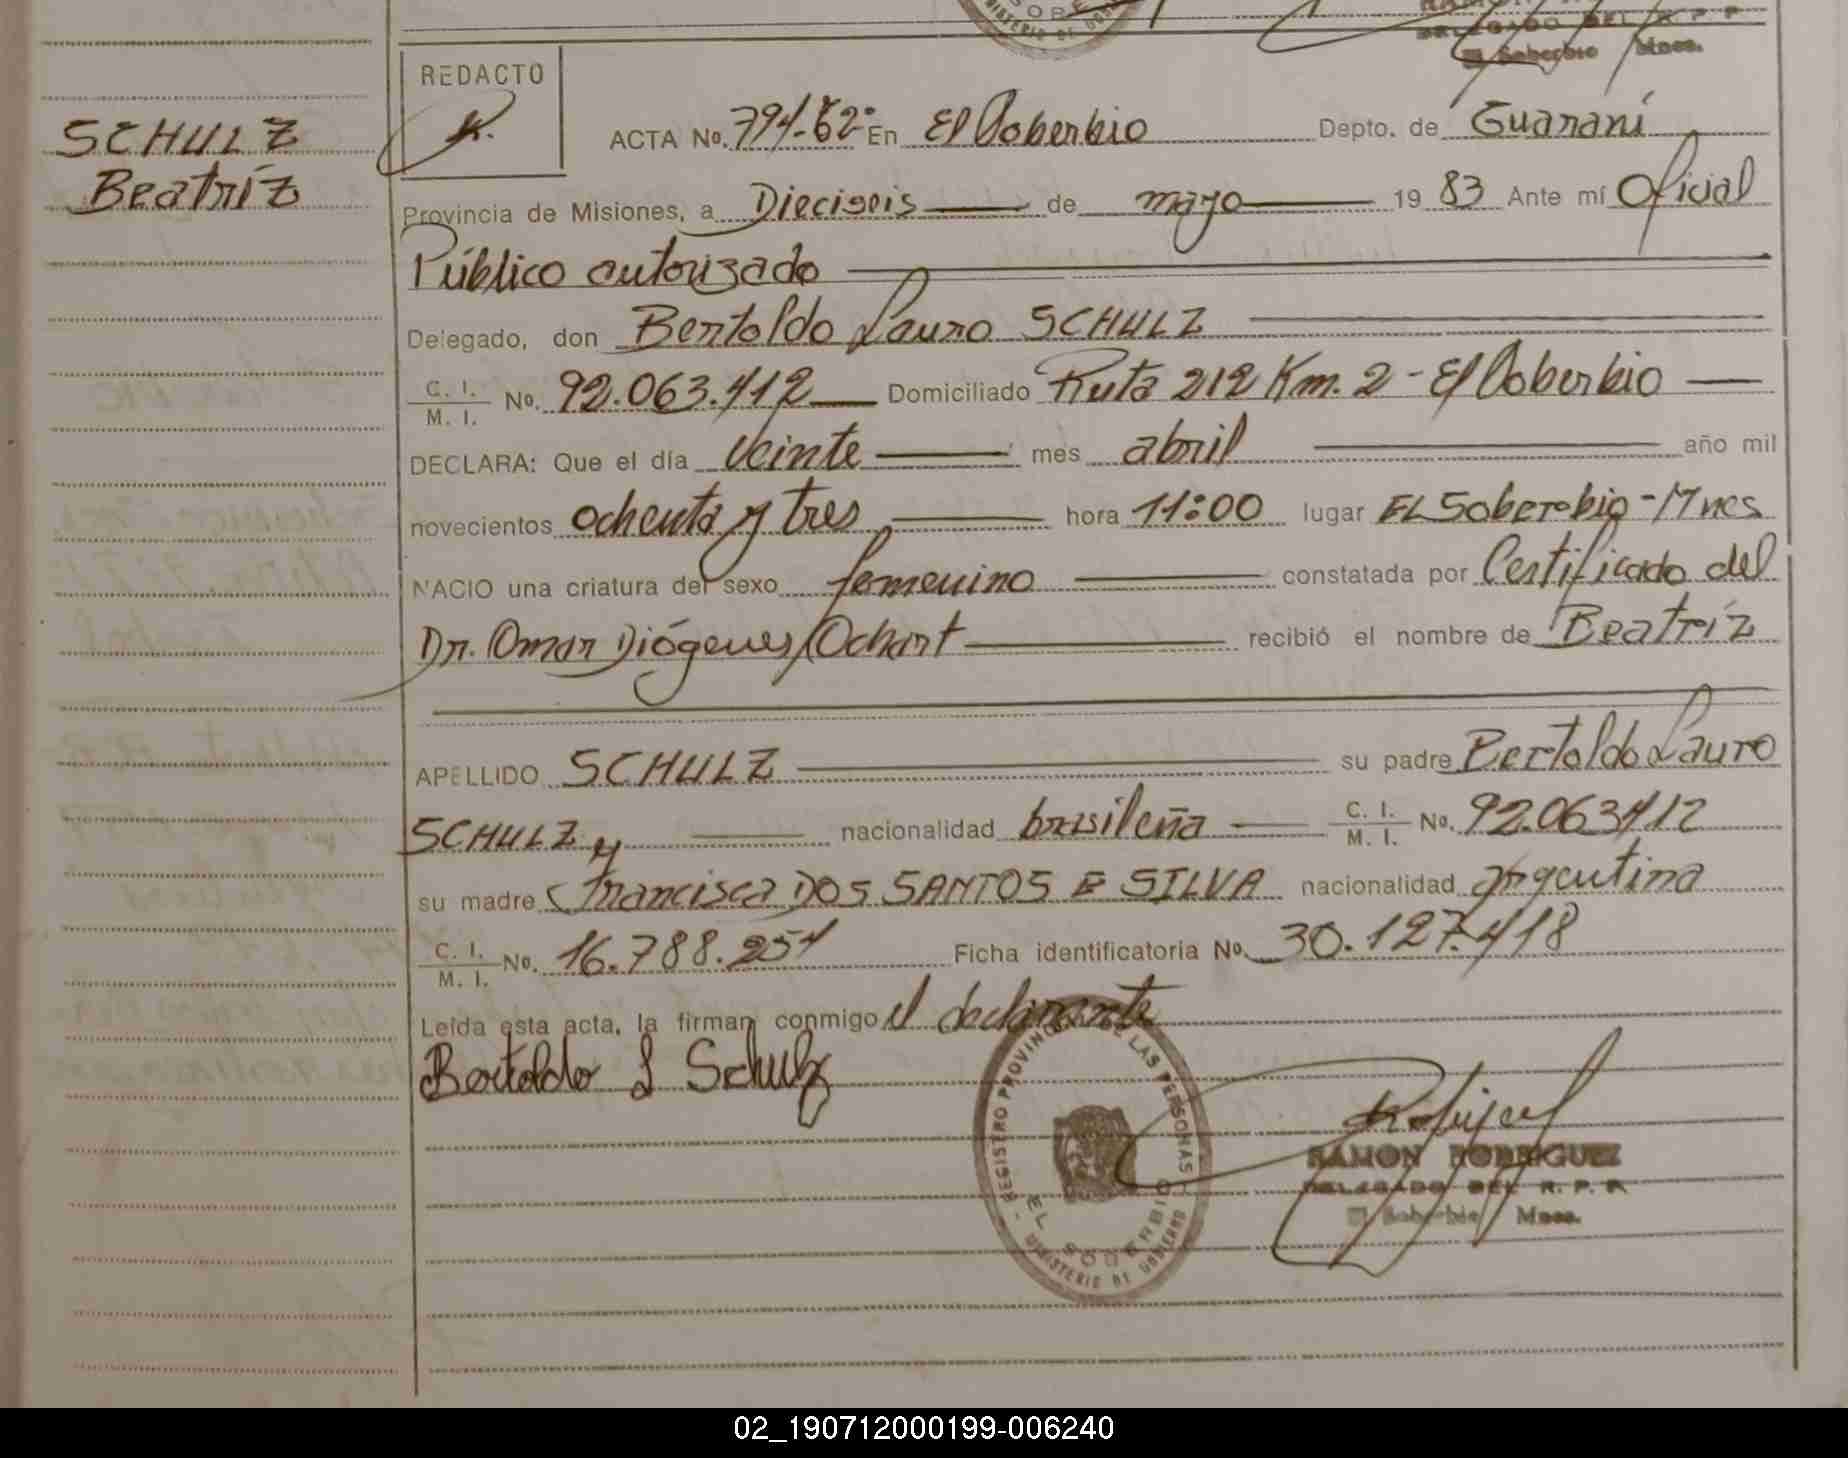 SCHULZ
Beatríz
REDACTO
ACTA No. 794-62º En El Soberbio Depto. de Guaraní
Provincia de Misiones, a Dieciseis de mayo 19 83 Ante mí Oficial
Público autorizado
Delegado, don Bertoldo Lauro SCHULZ
C. I.
M. I. No. 92.063.412 Domiciliado Ruta 212 Km. 2 - El Soberbio
DECLARA: Que el día veinte mes abril año mil
novecientos ochenta y tres hora 11:00 lugar EL Soberbio - Mnes
NACIO una criatura del sexo femenino constatada por Certificado del
Dr. Omar Diógenes Ochart recibió el nombre de Beatríz
APELLIDO SCHULZ su padre Bertoldo Lauro
SCHULZ y nacionalidad brasileña C. I.
M. I. No. 92.063412
su madre Francisca DOS SANTOS E SILVA nacionalidad argentina
C. I.
M. I. No. 16.788.254 Ficha identificatoria No. 30.127.418
Leída esta acta, la firman conmigo el declarante
Bertoldo L Schulz
REGISTRO PROVINCIAL DE LAS PERSONAS
EL SOBERBIO
MINISTERIO DE GOBIERNO
RAMON RODRIGUEZ
DELEGADO DEL R. P. P.
El Soberbio Mnes.
02_190712000199-006240